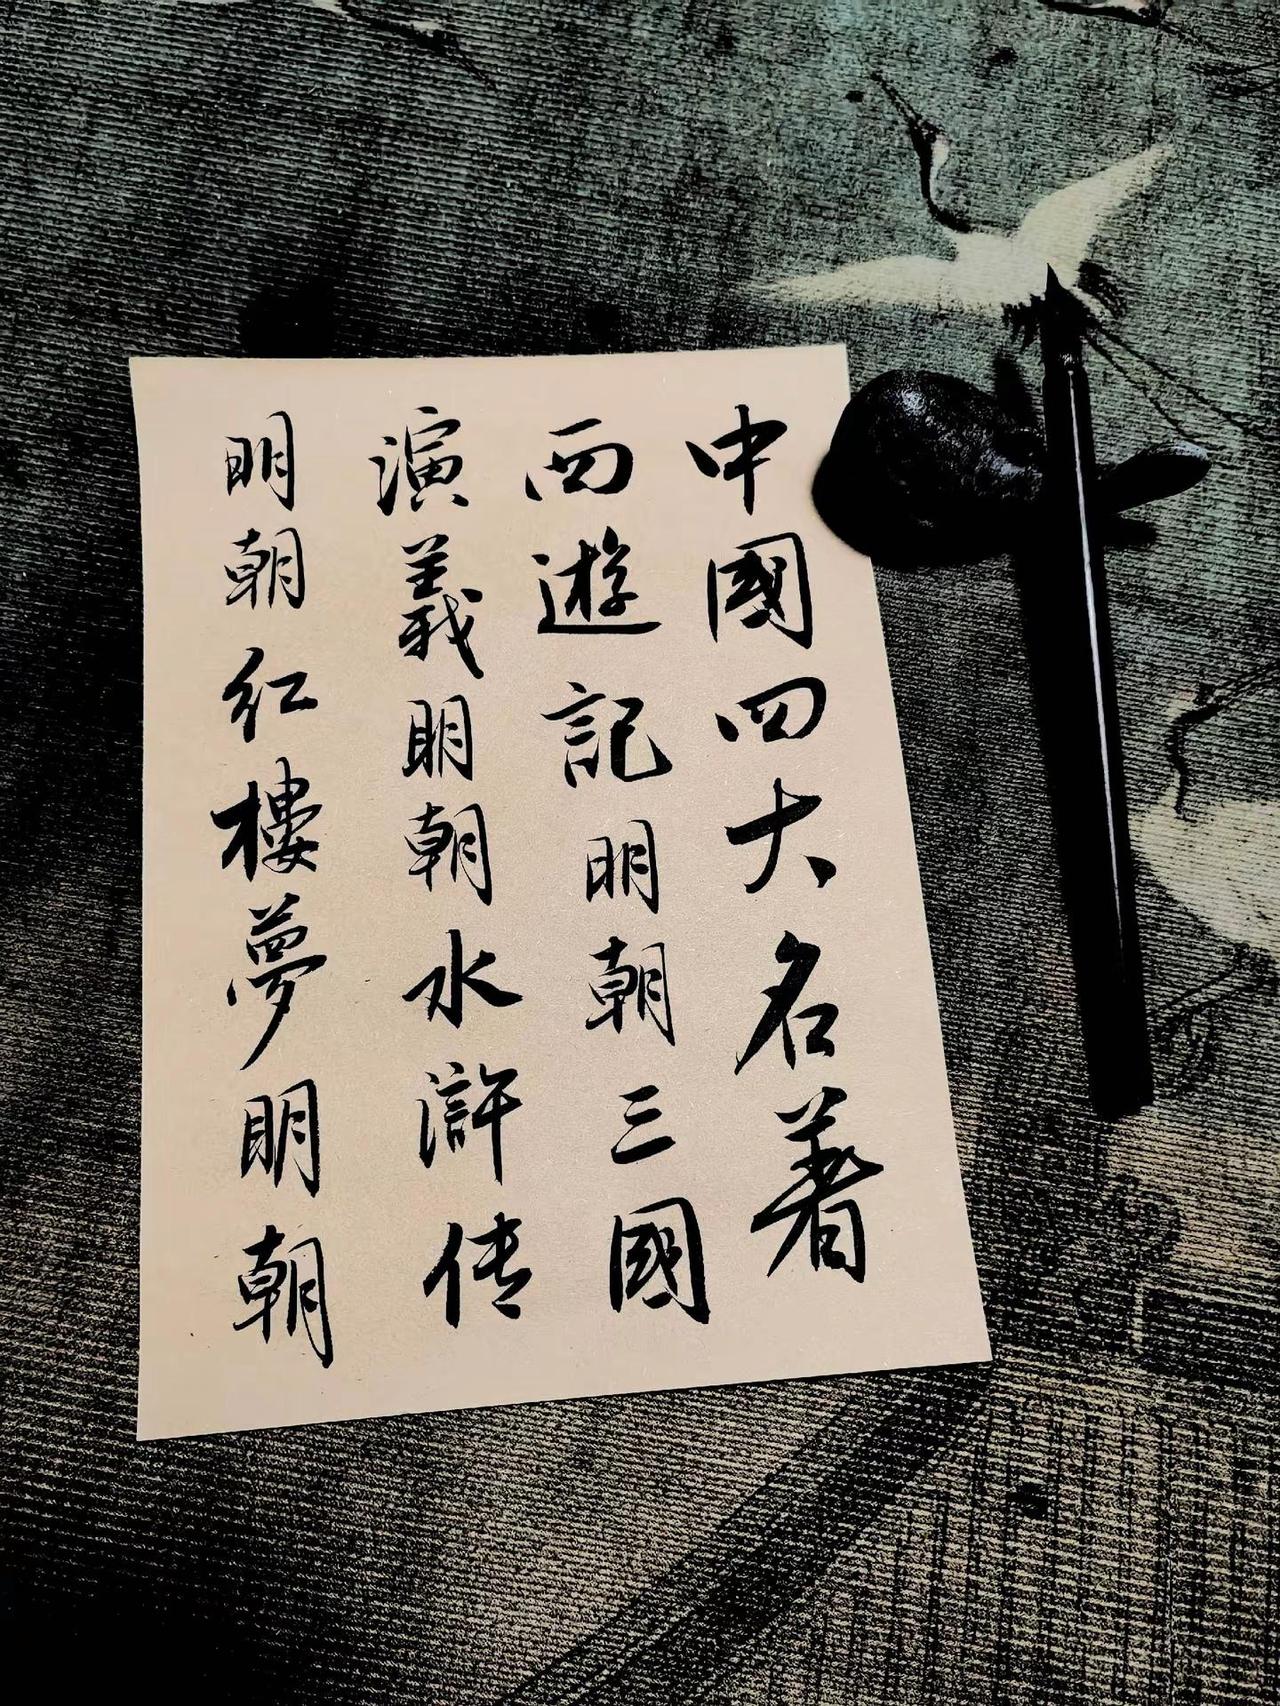 中國四大名著
西遊記明朝三國
演義明朝水滸传
明朝红樓夢明朝